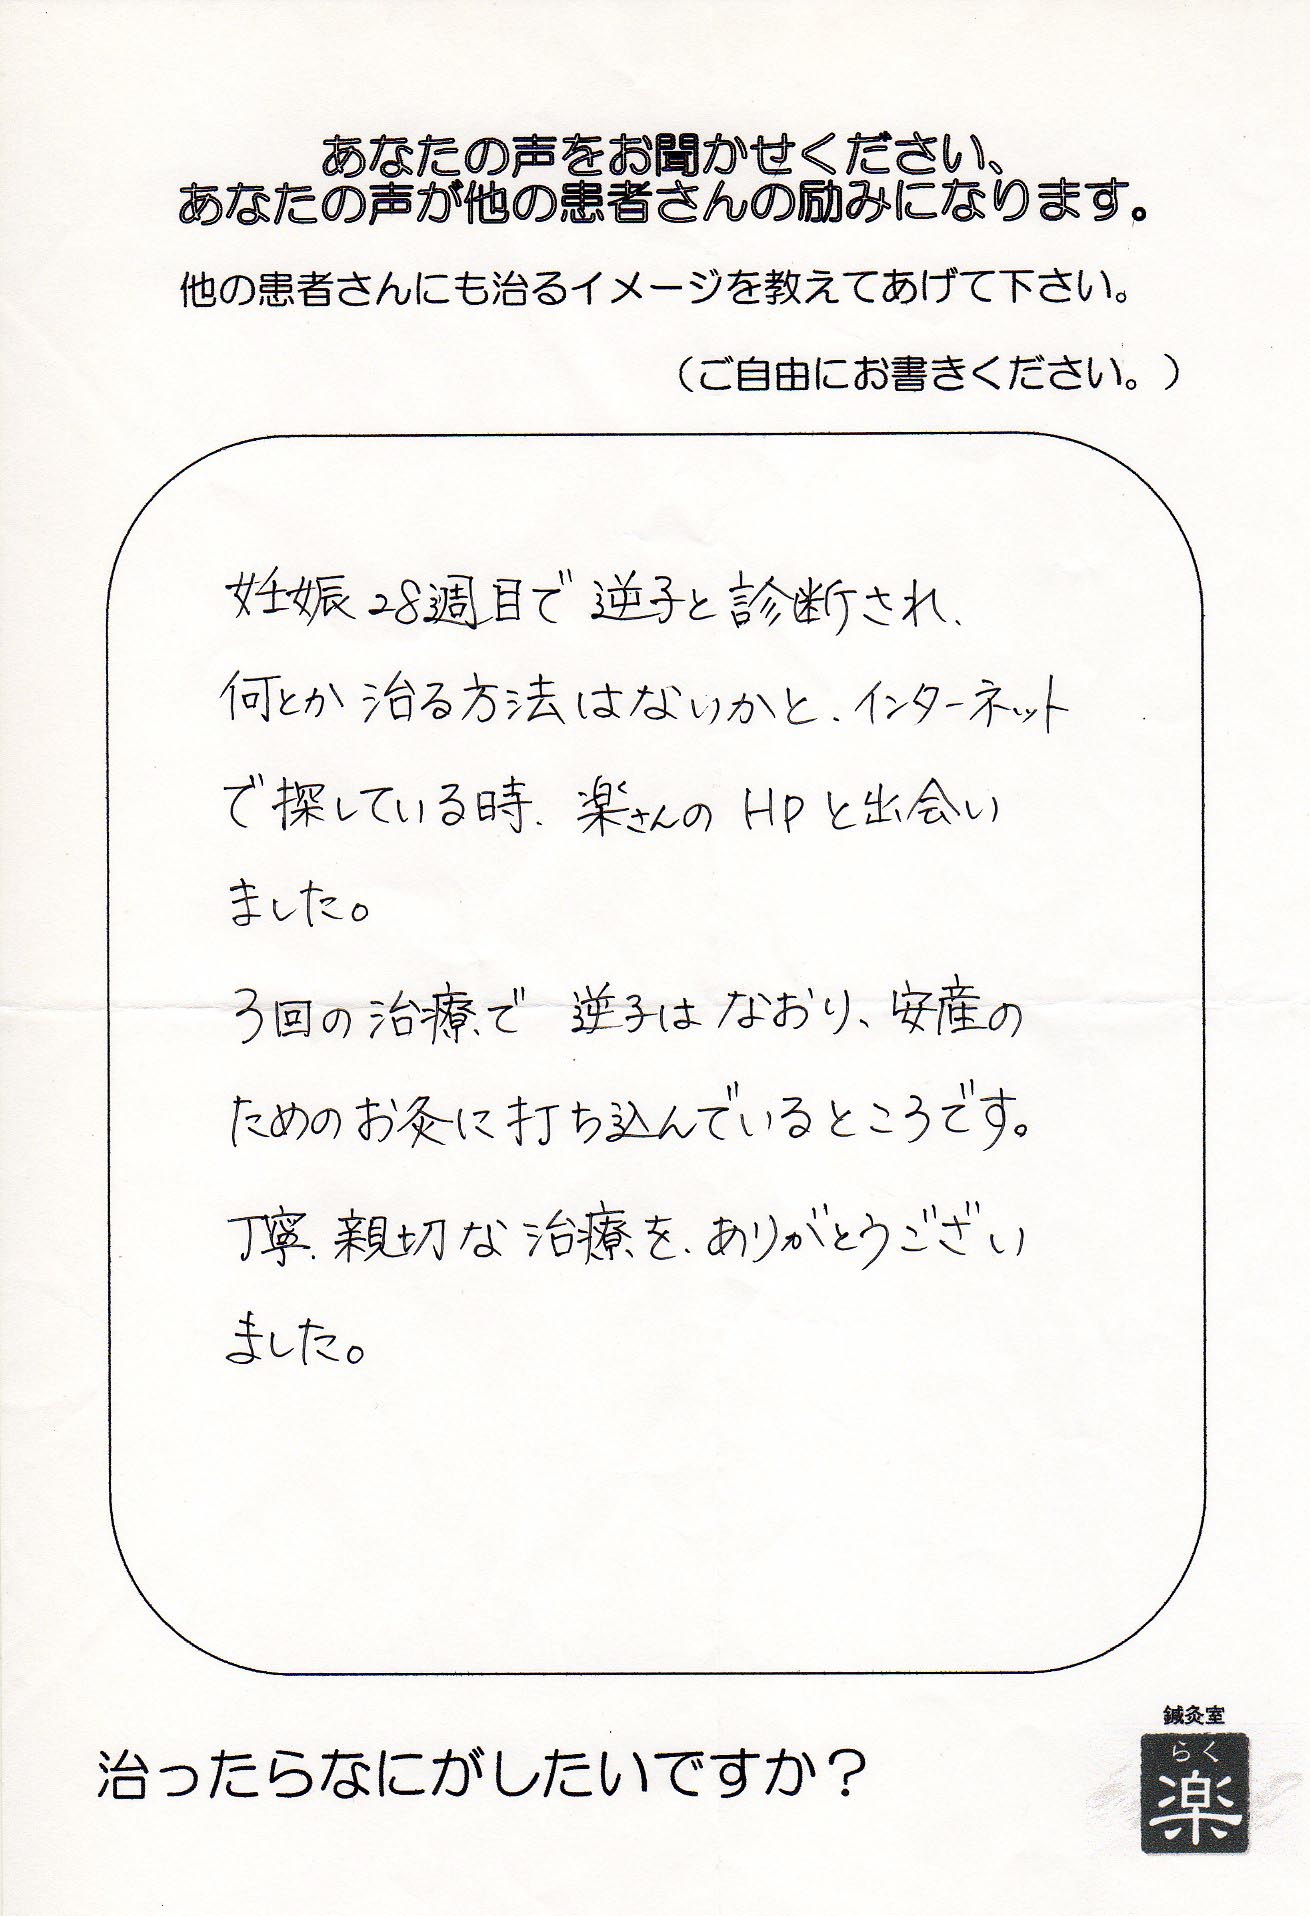 あなたの声をお聞かせください、
あなたの声が他の患者さんの励みになります。
他の患者さんにも治るイメージを教えてあげて下さい。
（ご自由にお書きください。）
妊娠28週目で逆子と診断され、
何とか治る方法はないかと、インターネット
で探している時、楽さんのHPと出会い
ました。
3回の治療で 逆子はなおり、安産の
ためのお灸に打ち込んでいるところです。
丁寧、親切な治療を、ありがとうござい
ました。
治ったらなにがしたいですか？
鍼灸室
らく
楽